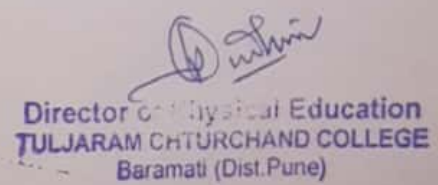 Director of Physical Education
TULJARAM CHTURCHAND COLLEGE
Baramati (Dist.Pune)